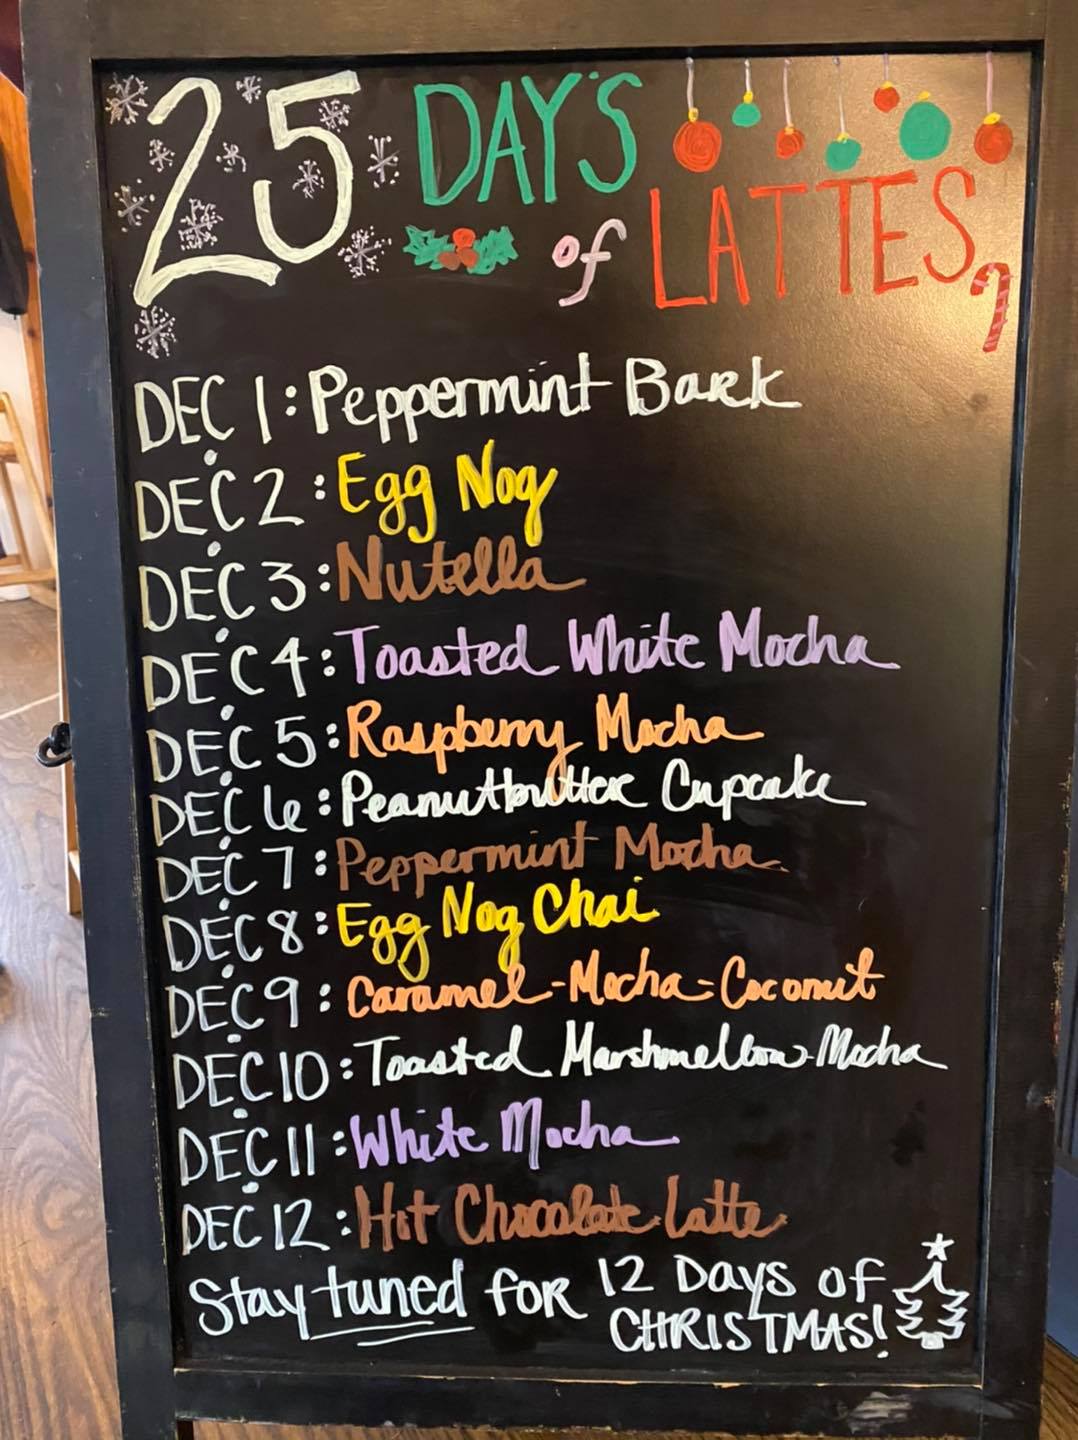 25 DAY'S
of LATTES
DEC 1: Peppermint Bark
DEC. 2: Egg Nog
DEC. 3: Nutella
DEC. 4: Toasted White Mocha
DEC. 5: Raspberry Mocha
DEC. 6: Peanutbutter Cupcake
DEC. 7: Peppermint Mocha
DEC. 8: Egg Nog Chai
DEC. 9: Caramel-Mocha-Coconut
DEC. 10: Toasted Marshmellow-Mocha
DEC. 11: White Mocha
DEC. 12: Hot Chocolate Latte
Stay tuned for 12 Days of
CHRISTMAS!